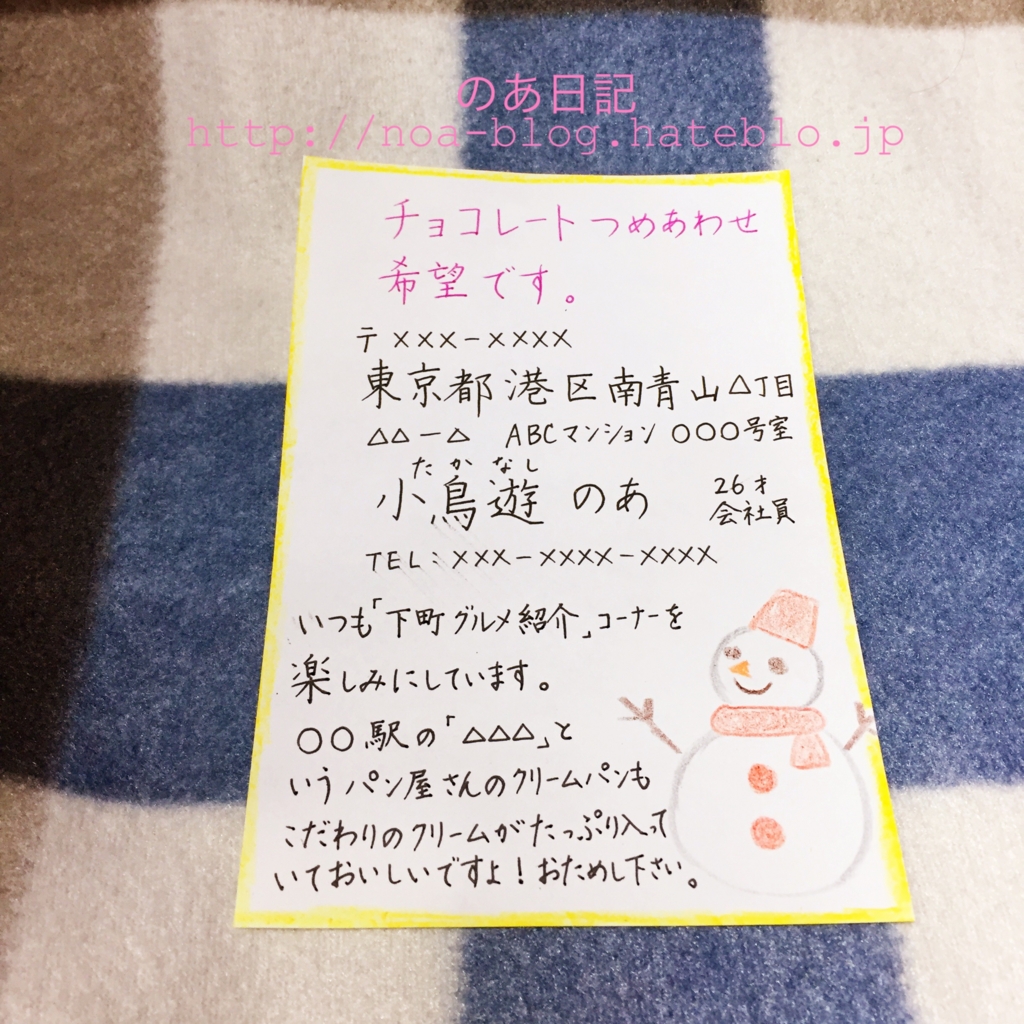 のあ日記
http://noa-blog.hateblo.jp
チョコレートつめあわせ
希望です。
〒×××-××××
東京都港区南青山△丁目
△△-△ ABCマンション ○○○号室
たかなし
小鳥遊 のあ
26才
会社員
TEL:×××-××××-××××
いつも「下町グルメ紹介」コーナーを
楽しみにしています。
○○駅の「△△△」と
いうパン屋さんのクリームパンも
こだわりのクリームがたっぷり入って
いておいしいですよ!おためし下さい。